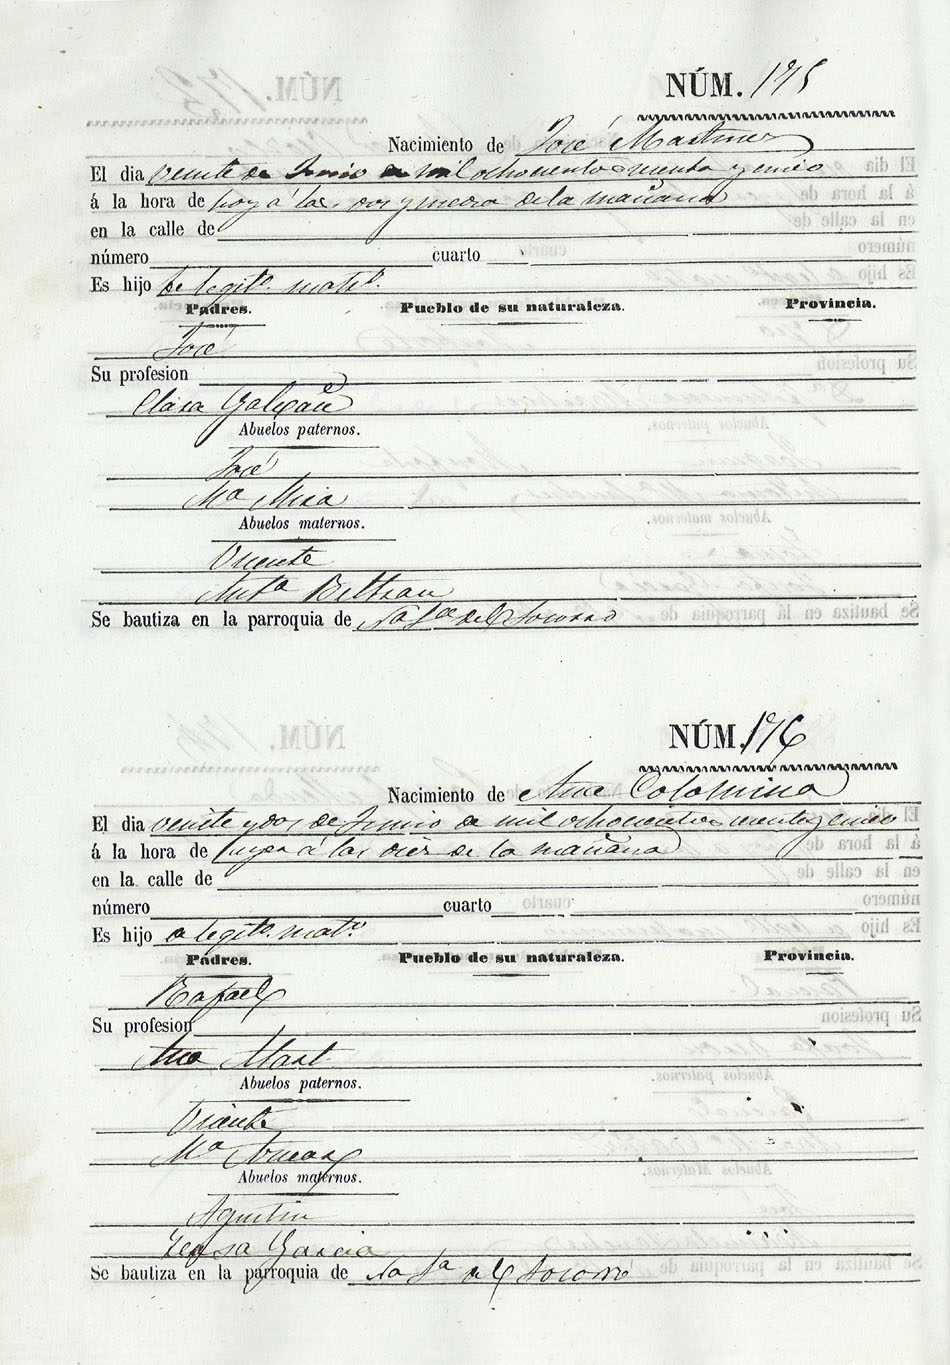 NÚM. 175
Nacimiento de José Martinez
El dia veinte de Junio de mil ochocientos sesenta y cinco
á la hora de hoy á las dos y media de la mañana
en la calle de
número cuarto
Es hijo de legitº. matº.
Padres. Pueblo de su naturaleza. Provincia.
José
Su profesion
Clara Galvañ
Abuelos paternos.
José
Mª Mira
Abuelos maternos.
Vicente
Antª Beltran
Se bautiza en la parroquia de Nª Sª del Socorro
NÚM. 176
Nacimiento de Ana Colomina
El dia veinte y dos de Junio de mil ochocientos sesenta y cinco
á la hora de á las diez de la mañana
en la calle de
número cuarto
Es hijo de legitº. matº.
Padres. Pueblo de su naturaleza. Provincia.
Rafael
Su profesion
Ana Mart.
Abuelos paternos.
Vicente
Mª
Abuelos maternos.
Agustin
Teresa Garcia
Se bautiza en la parroquia de Nª Sª del Socorro